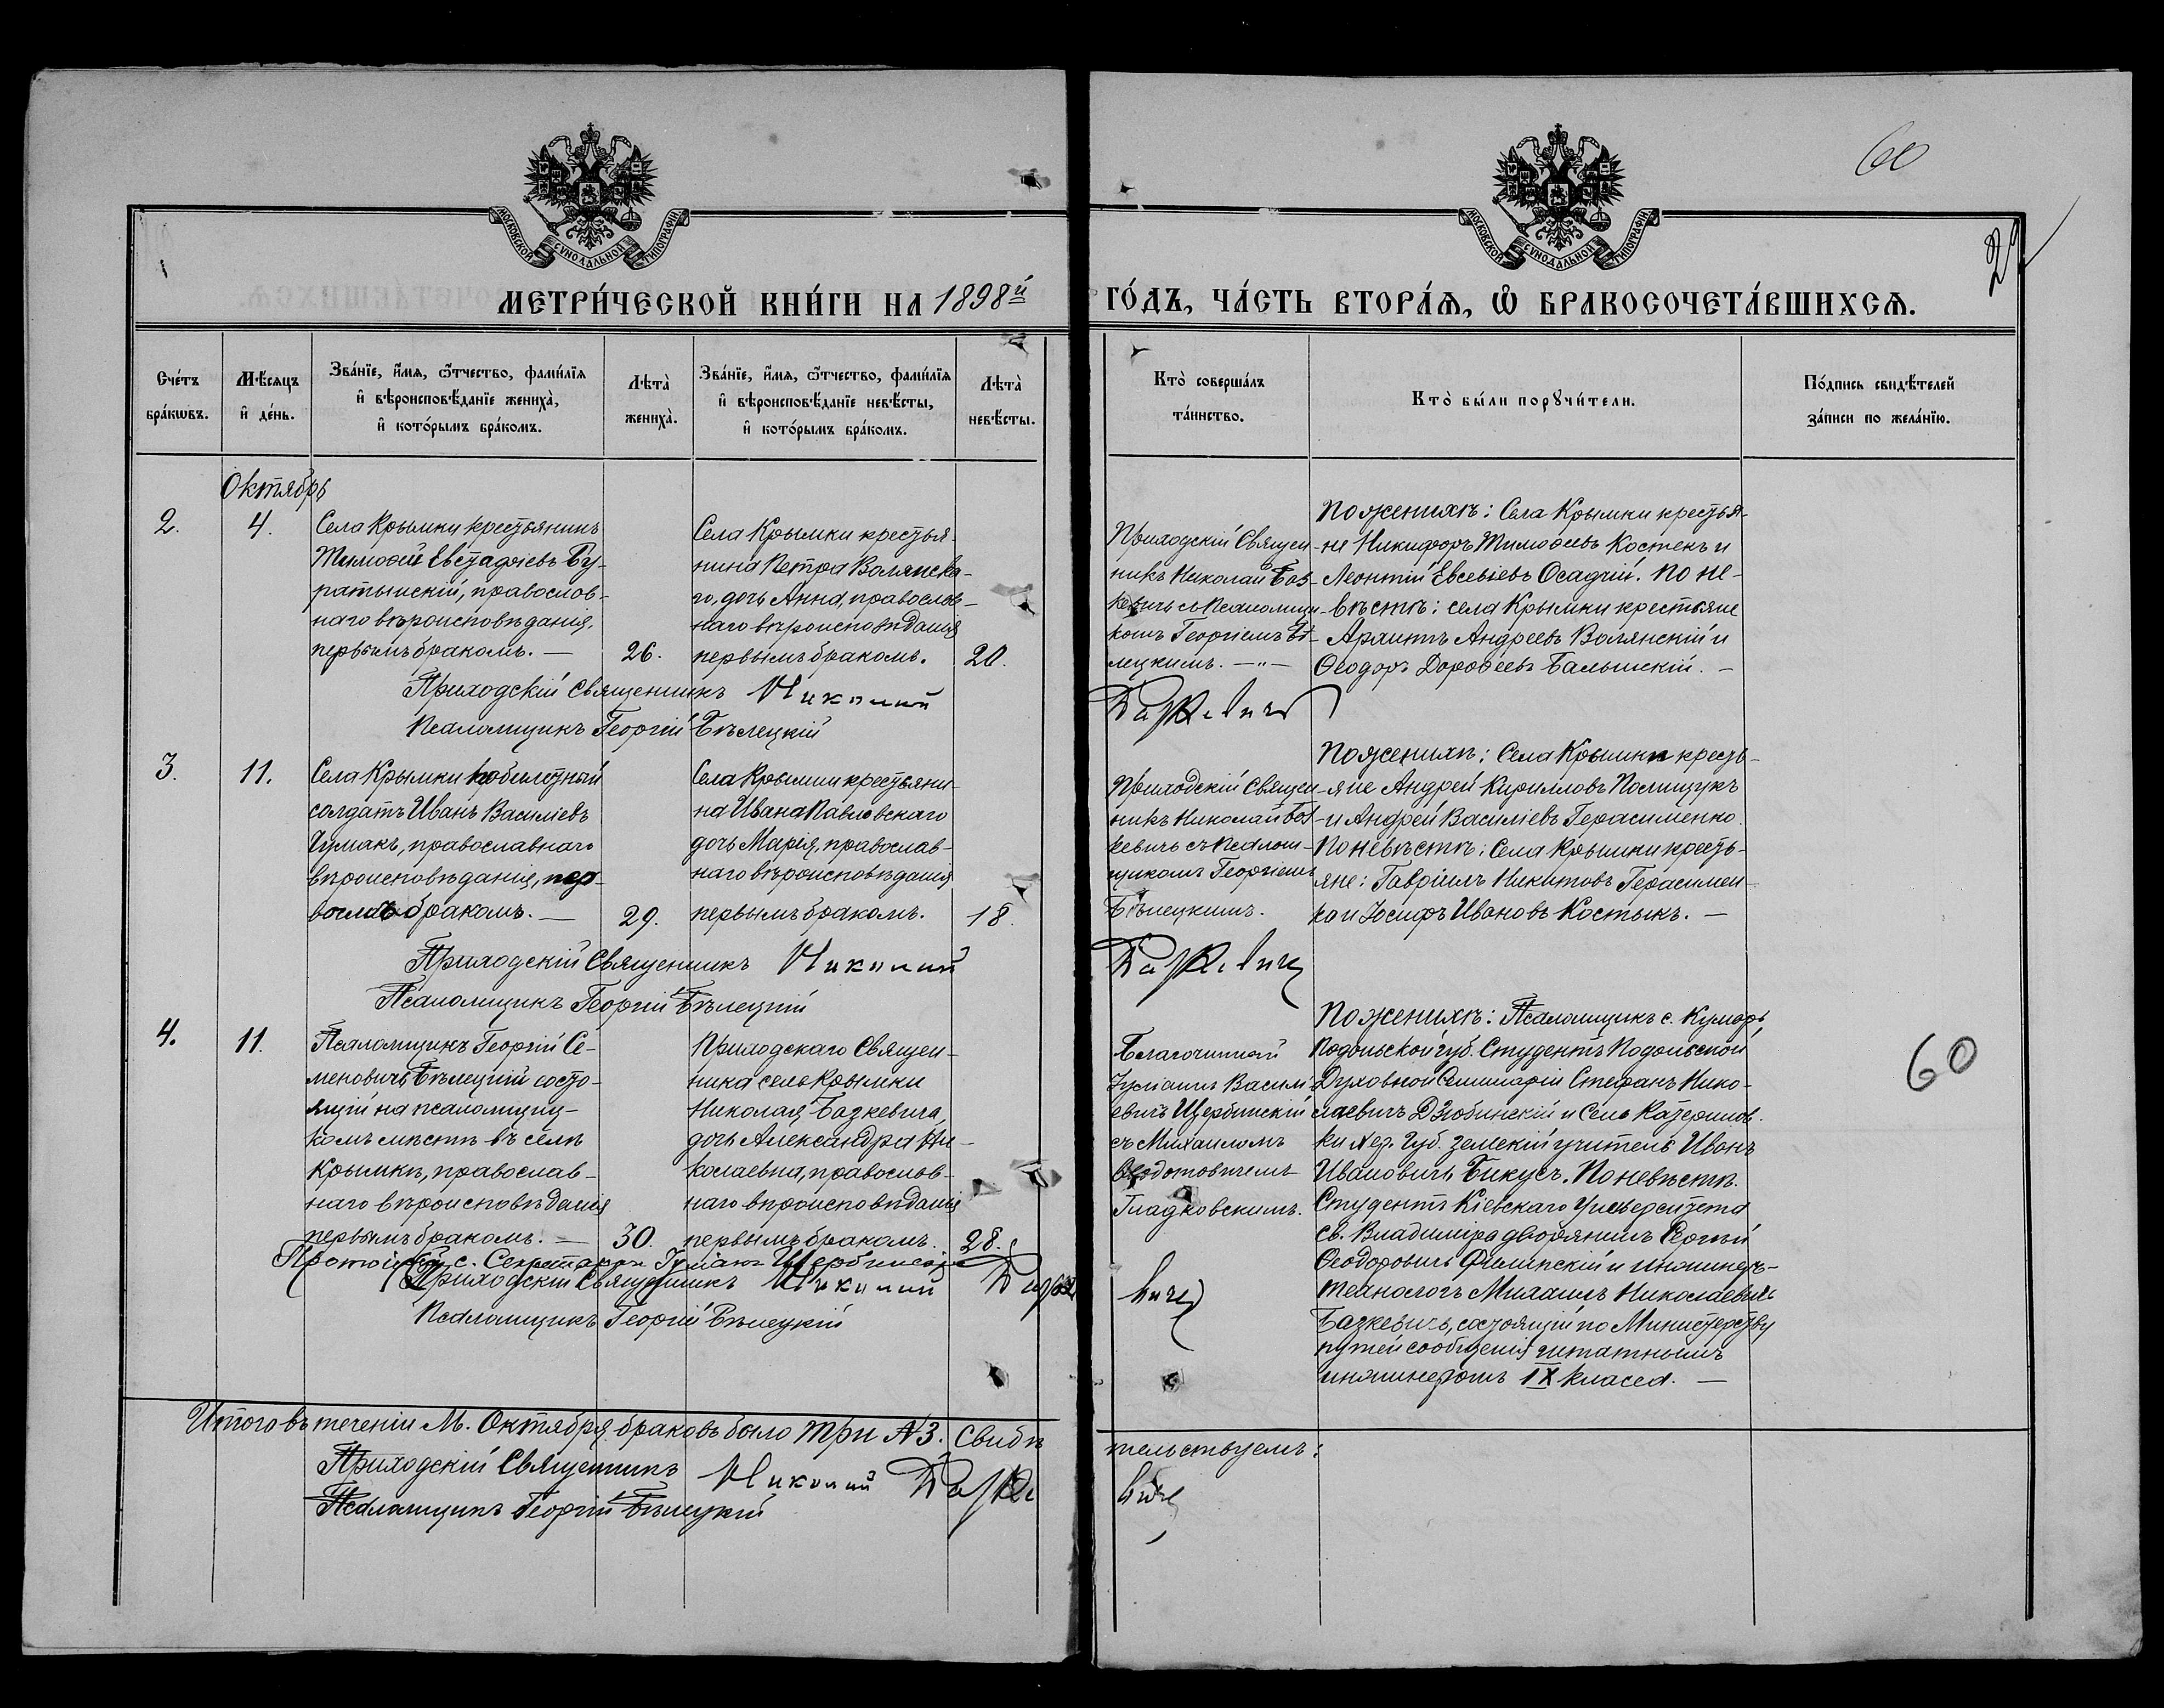 60
29
МОСКОВСКОЙ СѴНОДАЛЬНОЙ ТИПОГРАФІИ
МОСКОВСКОЙ СѴНОДАЛЬНОЙ ТИПОГРАФІИ
МЕТРИ́ЧЕСКОЙ КНИ́ГИ НА 1898й
ГО́ДЪ, ЧА́СТЬ ВТОРА́Ѧ, Ѡ҆ БРАКОСОЧЕТА́ВШИХСѦ.
Сче́тъ бра́кѡвъ.
Мѣ́сяцъ и҆ де́нь.
Зва́нїе, и҆́мѧ, ѻ҆́тчество, фами́лїѧ
и҆ вѣроисповѣ́данїе жениха̀,
и҆ кото́рымъ бра́комъ.
Лѣта̀ жениха̀.
Зва́нїе, и҆́мѧ, ѻ҆́тчество, фами́лїѧ
и҆ вѣроисповѣ́данїе невѣ́сты,
и҆ кото́рымъ бра́комъ.
Лѣта̀ невѣ́сты.
Кто̀ соверша́лъ
та́инство.
Кто̀ бы́ли порꙋчи́тели.
По́дпись свидѣ́телей
за́писи по жела́нїю.
Октябрь
2.
4.
Села Крымки крестьянинъ
Тимоѳей Евстафіевъ Бу-
ратынскій, православ-
наго вѣроисповѣданія,
первымъ бракомъ. —
26.
Села Крымки крестья-
нина Петра Волянска-
го, дочь Анна, православ-
наго вѣроисповѣданія
первымъ бракомъ.
20.
Приходскій Священ-
никъ Николай Баз-
кевичъ съ Псаломщи-
комъ Георгіемъ Бѣ-
лецкимъ. —„—
По женихѣ: Села Крымки крестья-
не Никифоръ Тимоѳеевъ Костенъ и
Леонтій Евсевіевъ Осадчій. По не-
вѣстѣ: села Крымки крестьяне
Архипъ Андреевъ Волянскій и
Ѳеодоръ Дороѳеевъ Балынскій. —
Приходскій Священникъ Николай Базкевичъ
Псаломщикъ Георгій Бѣлецкій
3.
11.
Села Крымки кобилетный
солдатъ Иванъ Василіевъ
Чумакъ, православнаго
вѣроисповѣданія, пер-
вымъ бракомъ. —
29.
Села Крымки крестьяни-
на Ивана Павловскаго
дочь Марія, православ-
наго вѣроисповѣданія
первымъ бракомъ.
18.
Приходскій Священ-
никъ Николай Баз-
кевичъ съ Псалом-
щикомъ Георгіемъ
Бѣлецкимъ.
По женихѣ: Села Крымки кресть-
яне Андрей Кирилловъ Полищукъ
и Андрей Василіевъ Герасименко.
По невѣстѣ: Села Крымки кресть-
яне: Гавріилъ Никитовъ Герасимен-
ко и Іосифъ Ивановъ Костыкъ. —
Приходскій Священникъ Николай Базкевичъ
Псаломщикъ Георгій Бѣлецкій
4.
11.
Псаломщикъ Георгій Се-
меновичъ Бѣлецкій состо-
ящій на псаломщиц-
комъ мѣстѣ въ селѣ
Крымкѣ, православ-
наго вѣроисповѣданія
первымъ бракомъ. —
30.
Приходскаго Священ-
ника села Крымки
Николая Базкевича,
дочь Александра Ни-
колаевна, православ-
наго вѣроисповѣданія
первымъ бракомъ.
28.
Благочинный
Іуліанъ Василі-
евичъ Щербинскій
съ Михаиломъ
Ѳеодотовичемъ
Гладковскимъ.
По женихѣ: Псаломщикъ с. Кумаръ
Подольской губ. Студентъ Подольской
Духовной Семинаріи Стефанъ Нико-
лаевичъ Дзюбинскій и села Катеринов-
ки Хер. Губ. земскій учитель Иванъ
Ивановичъ Бикусъ. По невѣстѣ.
Студентъ Кіевскаго Университета
св. Владиміра дворянинъ Сергѣй
Ѳеодоровичъ Филипскій и инженеръ-
технологъ Михаилъ Николаевичъ
Базкевичъ, состоящій по Министерству
путей сообщенія штатнымъ
инженеромъ IX класса. —
60
Протоіерей с. Секретарки Іуліанъ Щербинскій
Приходскій Священникъ Николай Базкевичъ
Псаломщикъ Георгій Бѣлецкій
Итого въ теченіи М. Октября браковъ было три №3. Свидѣтельствуемъ:
Приходскій Священникъ Николай Базкевичъ
Псаломщикъ Георгій Бѣлецкій